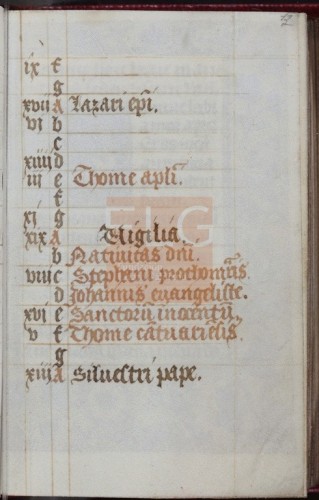 ix f
g
xvii A Lazari epi.
vi b
c
xiiii d
iii e Thome apli.
f
xi g
xix A Vigilia.
b Natiuitas dni.
viii c Stephani prothomris.
d Johannis euangeliste.
xvi e Sanctoru inocentu.
v f Thome catuariesis.
g
xiii A Siluestri pape.